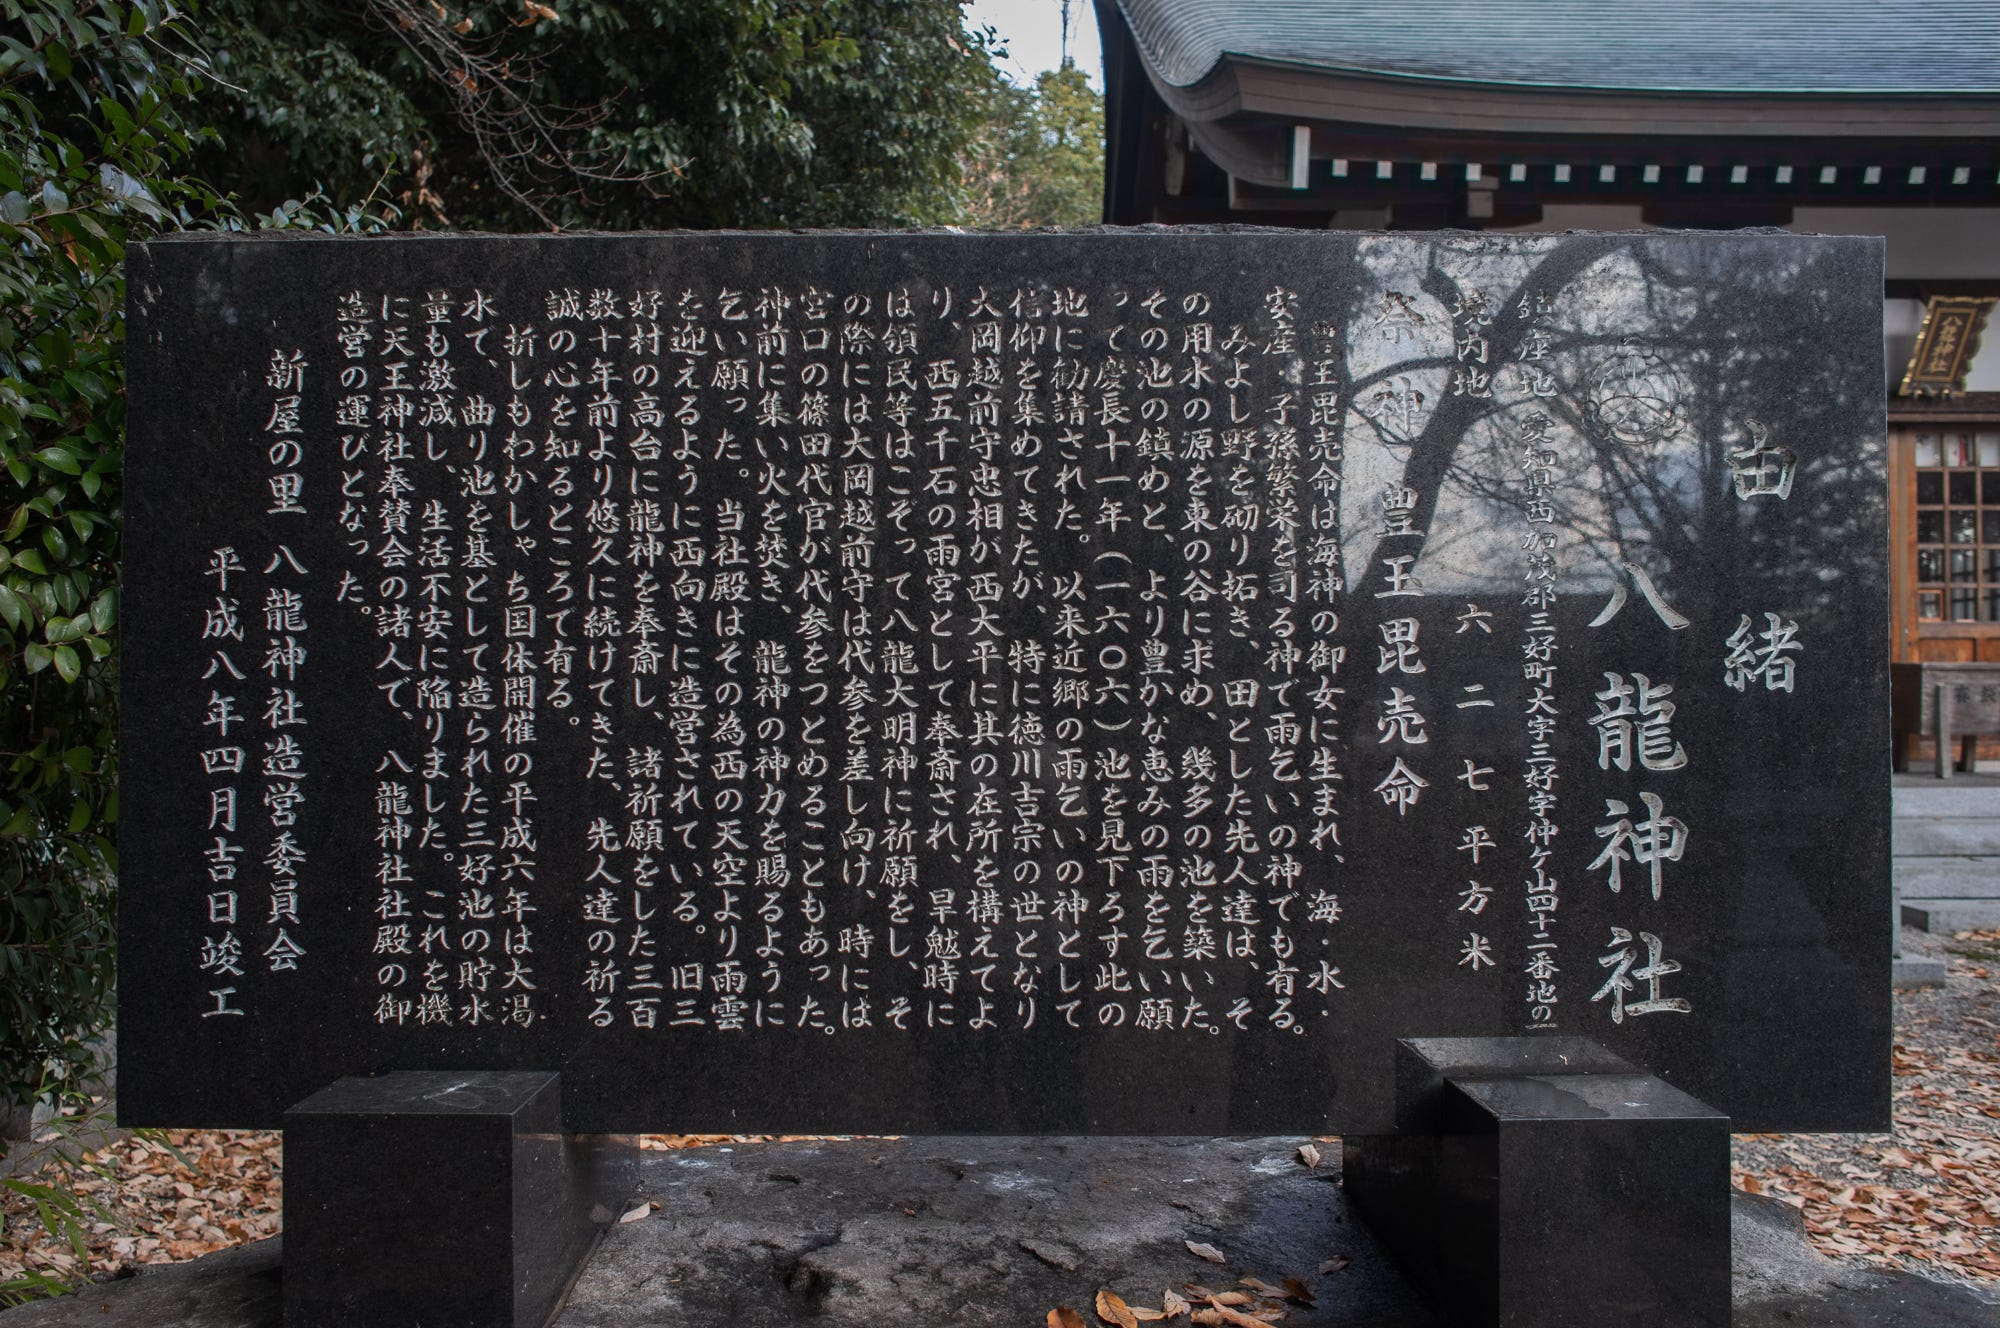 由緒
八龍神社
鎮座地 愛知県西加茂郡三好町大字三好字仲ケ山四十二番地の一
境内地 六二七平方米
祭神 豊玉毘売命
豊玉毘売命は海神の御女に生まれ、海・水・
安産・子孫繁栄を司る神で雨乞いの神でも有る。
みよし野を砌り拓き、田とした先人達は、そ
の用水の源を東の谷に求め、幾多の池を築いた。
その池の鎮めと、より豊かな恵みの雨を乞い願
って慶長十一年（一六〇六）池を見下ろす此の
地に勧請された。以来近郷の雨乞いの神として
信仰を集めてきたが、特に徳川吉宗の世となり
大岡越前守忠相が西大平に其の在所を構えてよ
り、西五千石の雨宮として奉斎され、旱魃時に
は領民等はこぞって八龍大明神に祈願をし、そ
の際には大岡越前守は代参を差し向け、時には
宮口の篠田代官が代参をつとめることもあった。
神前に集い火を焚き、龍神の神力を賜るように
乞い願った。当社殿はその為西の天空より雨雲
を迎えるように西向きに造営されている。旧三
好村の高台に龍神を奉斎し、諸祈願をした三百
数十年前より悠久に続けてきた、先人達の祈る
誠の心を知るところで有る。
折しもわかしゃち国体開催の平成六年は大渇
水で、曲り池を基として造られた三好池の貯水
量も激減し、生活不安に陥りました。これを機
に天王神社奉賛会の諸人で、八龍神社社殿の御
造営の運びとなった。
新屋の里 八龍神社造営委員会
平成八年四月吉日竣工
八龍神社